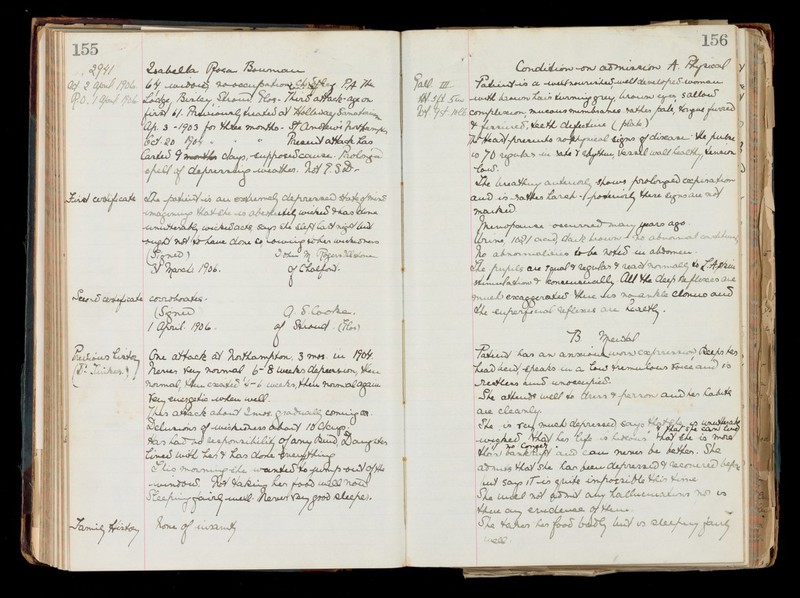 155
2941
Isabella Rosa Bowman
Ad 2 April 1906.
64 widow, no occupation
R.O. 1 April 1906
Lodge Bisley Stroud Glos. Third attack - age on
first 61. Previously treated at Holloway Sanatorium
Ap. 3 - 1903 for three months - St Andrew's Northampton
Oct 20 1904 " " " Present attack has
lasted 9 months days, supposed cause. Prolonged
spell of depressing weather. Not E. S or D.
First certificate
The patient is in an extremely depressed state of mind
imagining that she is absolutely wicked & has done
unutterably wicked acts, says she slept last night but
ought not to have done so, owing to her wickedness
(Signed)
31 March 1906. of Chalford.
Second certificate
corroborates.
(Signed A. S. Cooke.
1 April. 1906. of Stroud (Glos)
Previous History
One attack at Northampton 3 mos. in 1904
Never very normal 6-8 weeks depression, then
normal, then excited 4-6 weeks, then normal again
Very energetic when well.
This attack about 2 mos. gradually coming on.
Delusions of wickedness about 10 days.
Has had no responsibility of any kind, Daughter
lived with her & has done everything
This morning she wanted to jump out of the
window. Not taking her food well now
Sleeping fairly well. Never very good sleeper.
Family History
None of insanity
156
Condition on admission A. Physical
Patient is a well nourished, well developed woman
with brown hair turning grey, brown eyes sallow
complexion, mucous membranes rather pale, tongue furred
& fissured, teeth defective (plate)
The Heart presents no physical signs of disease. The pulse
is 70 regular in rate & rhythm, vessel wall healthy, tension
low.
The breathing anteriorly shows prolonged expiration
and is rather harsh - posteriorly these signs are not
marked
Menopause occurred many years ago.
Urine, 1021 acid, dark brown & no abnormal constituents
No abnormalities to be noted in abdomen.
The pupils are equal & regular & react normally to L. A. & skin
stimulation & consensually All the deep reflexes are
much exaggerated there is no ankle clonus and
the superficial reflexes are healthy.
B. Mental
Patient has an anxious worn expression keeps her
head bent, speaks in a low tremulous voice and is
restless and unoccupied.
She attends well to dress & person and her habits
are cleanly.
She is very much depressed says that she is unutterably
wicked that her life is hideous & that she can live
no longer that she is more
than bankrupt and can never be better. She
admits that she has been depressed & recovered before
but says it is quite impossible this time
She will not admit any hallucinations nor is
there any evidence of them.
She takes her food badly but is sleeping fairly
well.